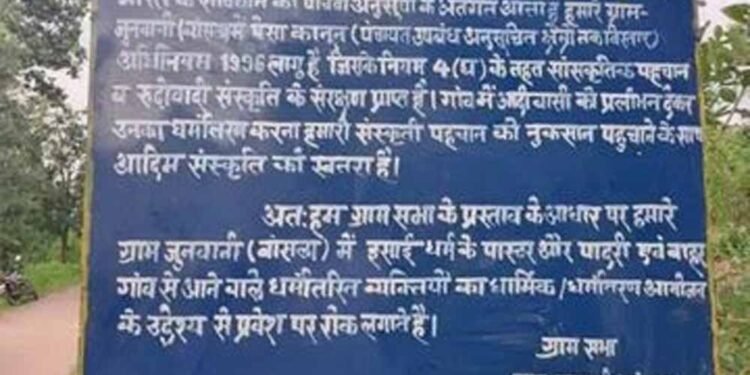 संविधान की पांचवी अनुसूची के अंतर्गत आता है हमारे ग्राम-
जुनवानी (बासला) में पेसा कानून (पंचायत उपबंध अनुसूचित क्षेत्रों तक विस्तार)
अधिनियम 1996 लागु है जिसके नियम 4(घ) के तहत सांस्कृतिक पहचान
व रूढीवादी संस्कृति के संरक्षण प्राप्त है। गांव में आदीवासी को प्रलोभन देकर
उनका धर्मांतरण करना हमारी संस्कृती पहचान को नुकसान पहुचाने के साथ
आदिम संस्कृति को खतरा है।
अतः हम ग्राम सभा के प्रस्ताव के आधार पर हमारे
ग्राम जुनवानी (बासला) में इसाई धर्म के पास्टर और पादरी एवं बाहर
गांव से आने वाले धर्मांतरित व्यक्तियों का धार्मिक/धर्मांतरण आयोजन
के उद्देश्य से प्रवेश पर रोक लगाते है।
ग्राम सभा